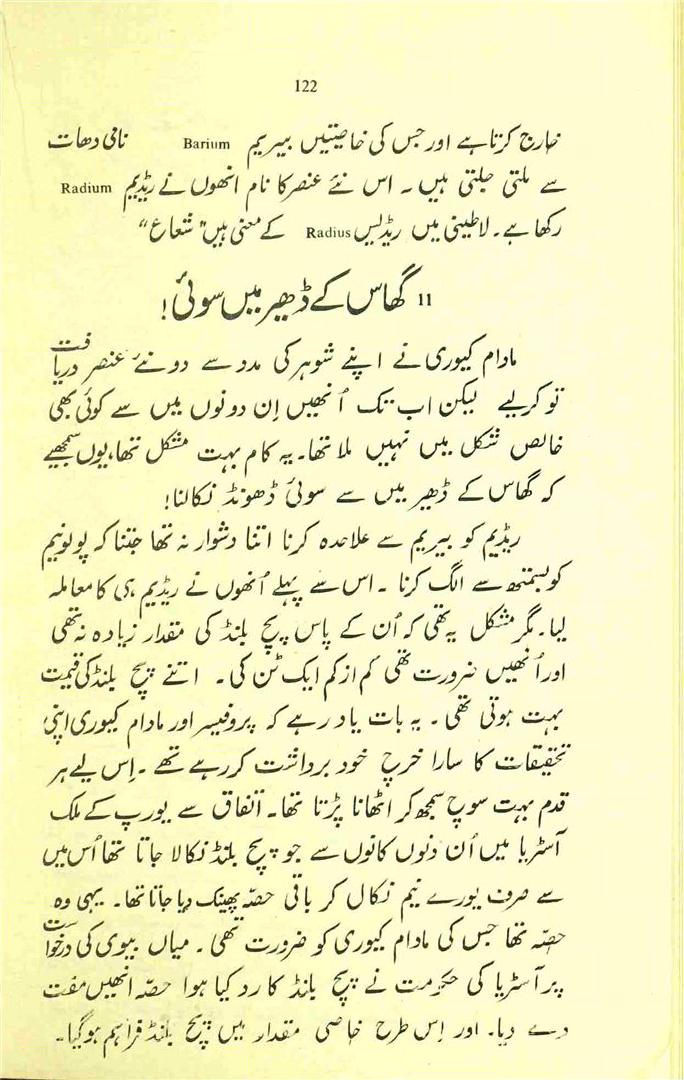 122
خارج کرتا ہے اور جس کی خاصیتیں بیریم Barium نامی دھات
سے ملتی جلتی ہیں ۔ اس نئے عنصر کا نام انھوں نے ریڈیم Radium
رکھا ہے۔ لاطینی میں ریڈیس Radius کے معنی ہیں "شعاع"
11 گھاس کے ڈھیر میں سوئی!
مادام کیوری نے اپنے شوہر کی مدد سے دو نئے عنصر دریافت
تو کر لیے لیکن اب تک اُنھیں اِن دونوں میں سے کوئی بھی
خالص شکل میں نہیں ملا تھا۔ یہ کام بہت مشکل تھا، یوں سمجھیے
کہ گھاس کے ڈھیر میں سے سوئی ڈھونڈ نکالنا!
ریڈیم کو بیریم سے علاحدہ کرنا اتنا دشوار نہ تھا جتنا کہ پولونیم
کو بسمتھ سے الگ کرنا ۔ اس سے پہلے اُنھوں نے ریڈیم ہی کا معاملہ
لیا۔ مگر مشکل یہ تھی کہ اُن کے پاس پچ بلنڈ کی مقدار زیادہ نہ تھی
اور اُنھیں ضرورت تھی کم از کم ایک ٹن کی ۔ اتنے پچ بلنڈ کی قیمت
بہت ہوتی تھی ۔ یہ بات یاد رہے کہ پروفیسر اور مادام کیوری اپنی
تحقیقات کا سارا خرچ خود برداشت کر رہے تھے ۔ اِس لیے ہر
قدم بہت سوچ سمجھ کر اٹھانا پڑتا تھا۔ اتفاق سے یورپ کے ملک
آسٹریا میں اُن دنوں کانوں سے جو پچ بلنڈ نکالا جاتا تھا اُس میں
سے صرف یورے نیم نکال کر باقی حصّہ پھینک دیا جاتا تھا۔ یہی وہ
حصّہ تھا جس کی مادام کیوری کو ضرورت تھی ۔ میاں بیوی کی درخواست
پر آسٹریا کی حکومت نے پچ بلنڈ کا رد کیا ہوا حصّہ انھیں مفت
دے دیا۔ اور اِس طرح خاصی مقدار میں پچ بلنڈ فراہم ہو گیا۔